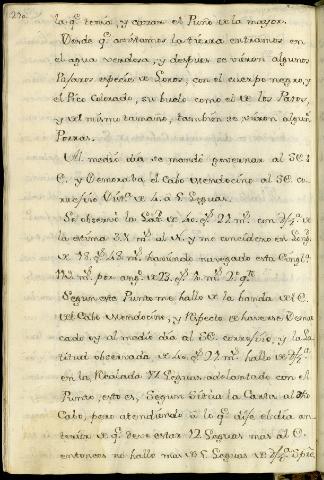 270.
la qe. tenia; y cazar el Puño de la mayor.
Desde qe. avistamos la tierra entramos en
el agua verdosa, y despues se vieron algunos
Paxaros especie de Loros, con el cuerpo negro, y
el Pico Colorado, su buelo como el de los Patos,
y del mismo tamaño, tambien se vieron algun
Porras.
Al medio dia se mandó governar al SE ¼
E. y Demoraba el Cabo Mendocino al SE. co
rrexido Distª de 4. á 5 Leguas.
Se observó la Latd. de 40. gs. 22 ms. con difª. de
la estima 38 ms. al N. y me considero en Longd.
de 18. gs. 18 ms. haviendo navegado esta Singlª.
112 ms. por ango. de 23. gs.
Segun este Punto me hallo de la banda del E.
del Cabo Mendocino, y Respecto de haverse Demar
cado oy al medio dia al SE correxido, y la La
titud observada de 40. gs. 22 ms. hallo de difª.
en la Recalada 77 Leguas adelantado con el
Punto, esto es, Segun Situa la Carta al dho
Cabo, pero atendiendo á lo qe. dixe el dia an
terior de qe. deve estar 12 Leguas mas al E.
entonces no hallo mas de 5 Leguas de difª.